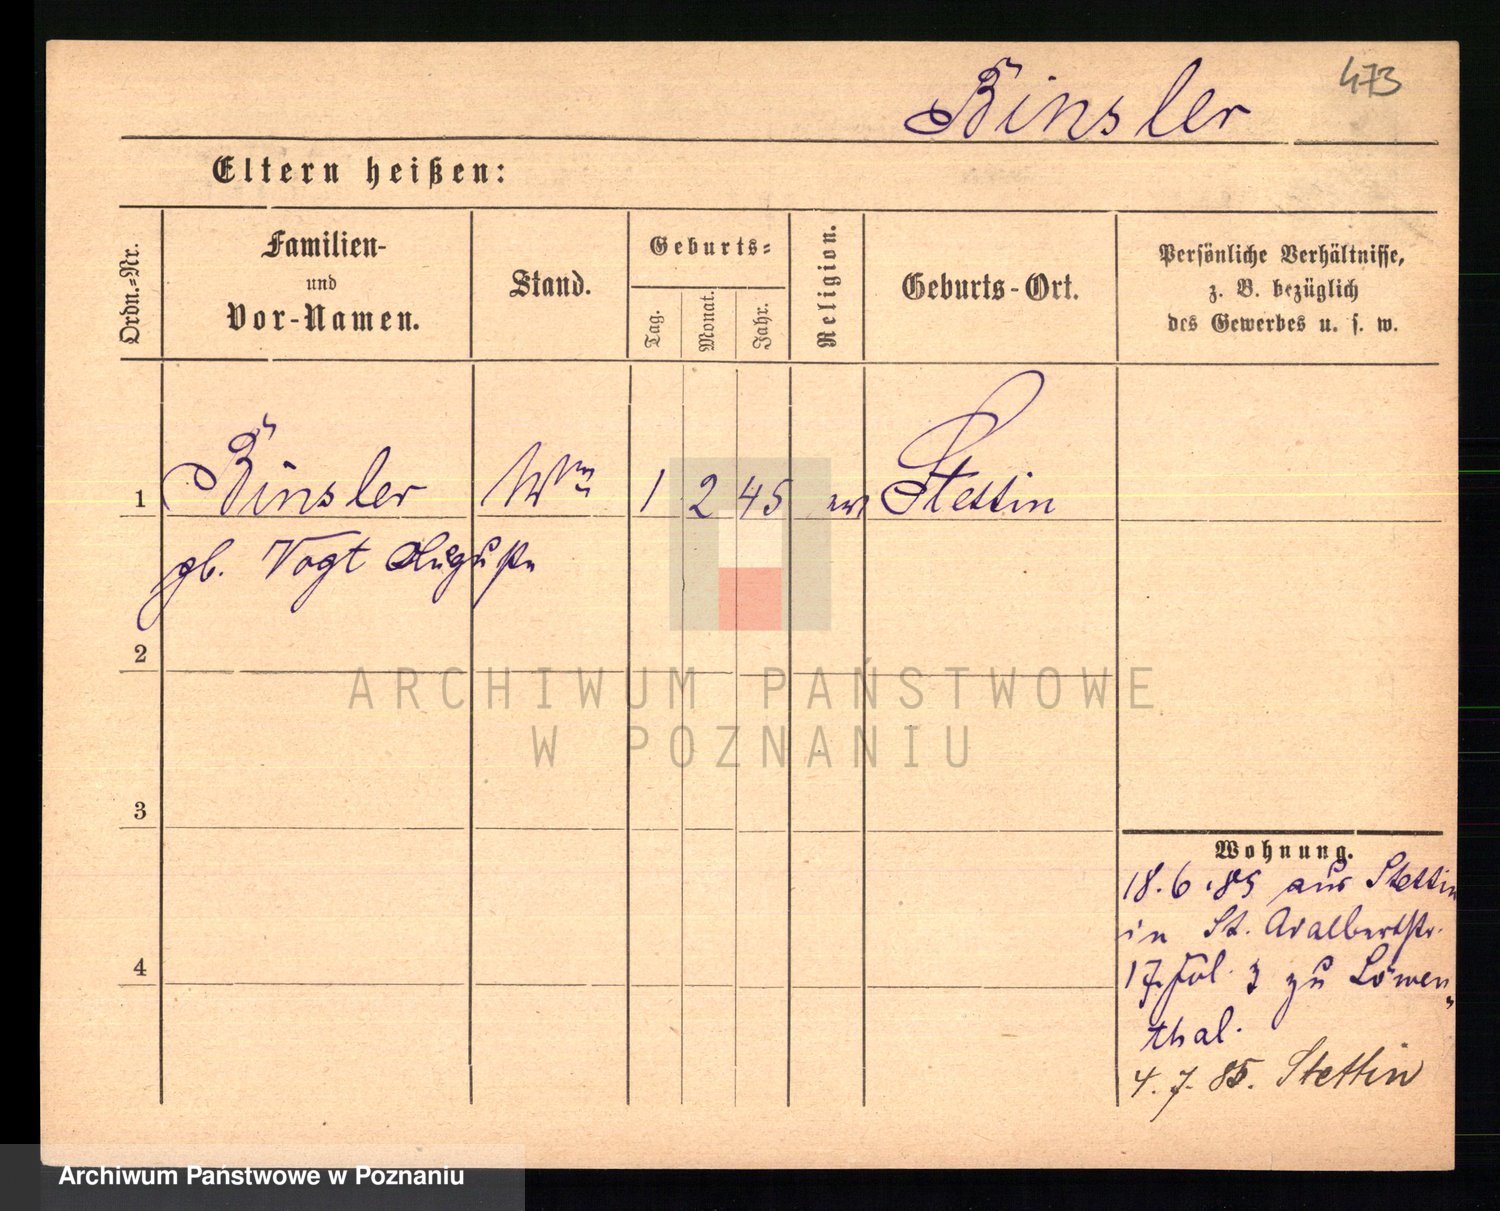 473
Binsler
Eltern heißen:
Ordn.=Nr.
Familien-
und
Vor-Namen.
Stand.
Geburts=
Tag.
Monat.
Jahr.
Religion.
Geburts-Ort.
Persönliche Verhältnisse,
z. B. bezüglich
des Gewerbes u. s. w.
1 Binsler Wwe 1 2 45 ev Stettin
gb. Vogt Auguste
2
3
4
Wohnung.
18.6.85 aus Stettin
in St. Adalbertstr.
17 zu Löwen
thal.
4.7.85. Stettin
ARCHIWUM PAŃSTWOWE
W POZNANIU
Archiwum Państwowe w Poznaniu